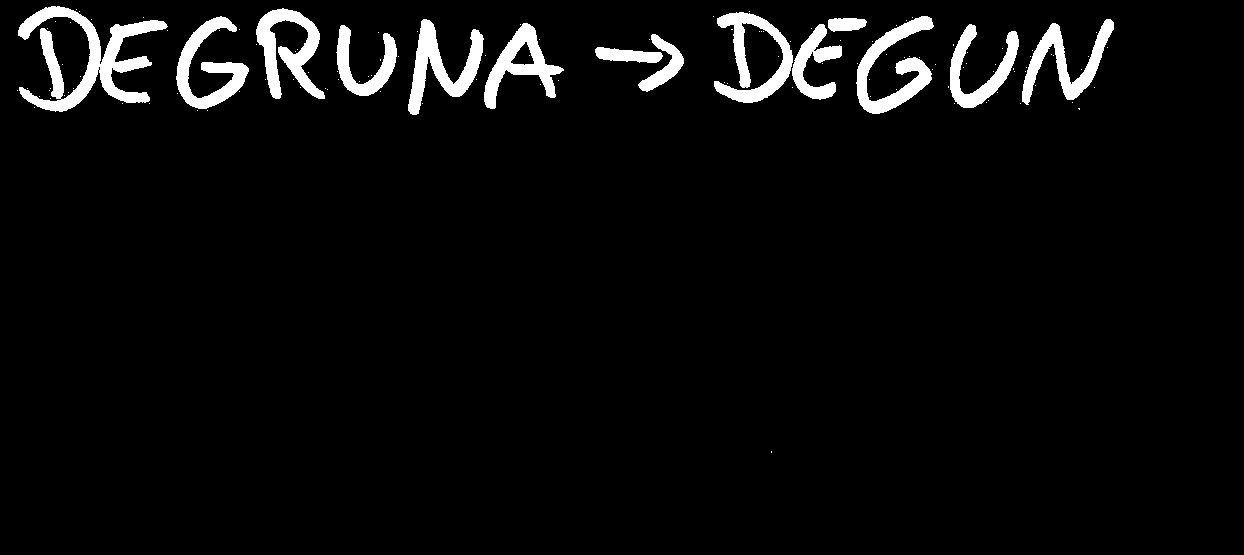 DEGRUNA → DEGUN